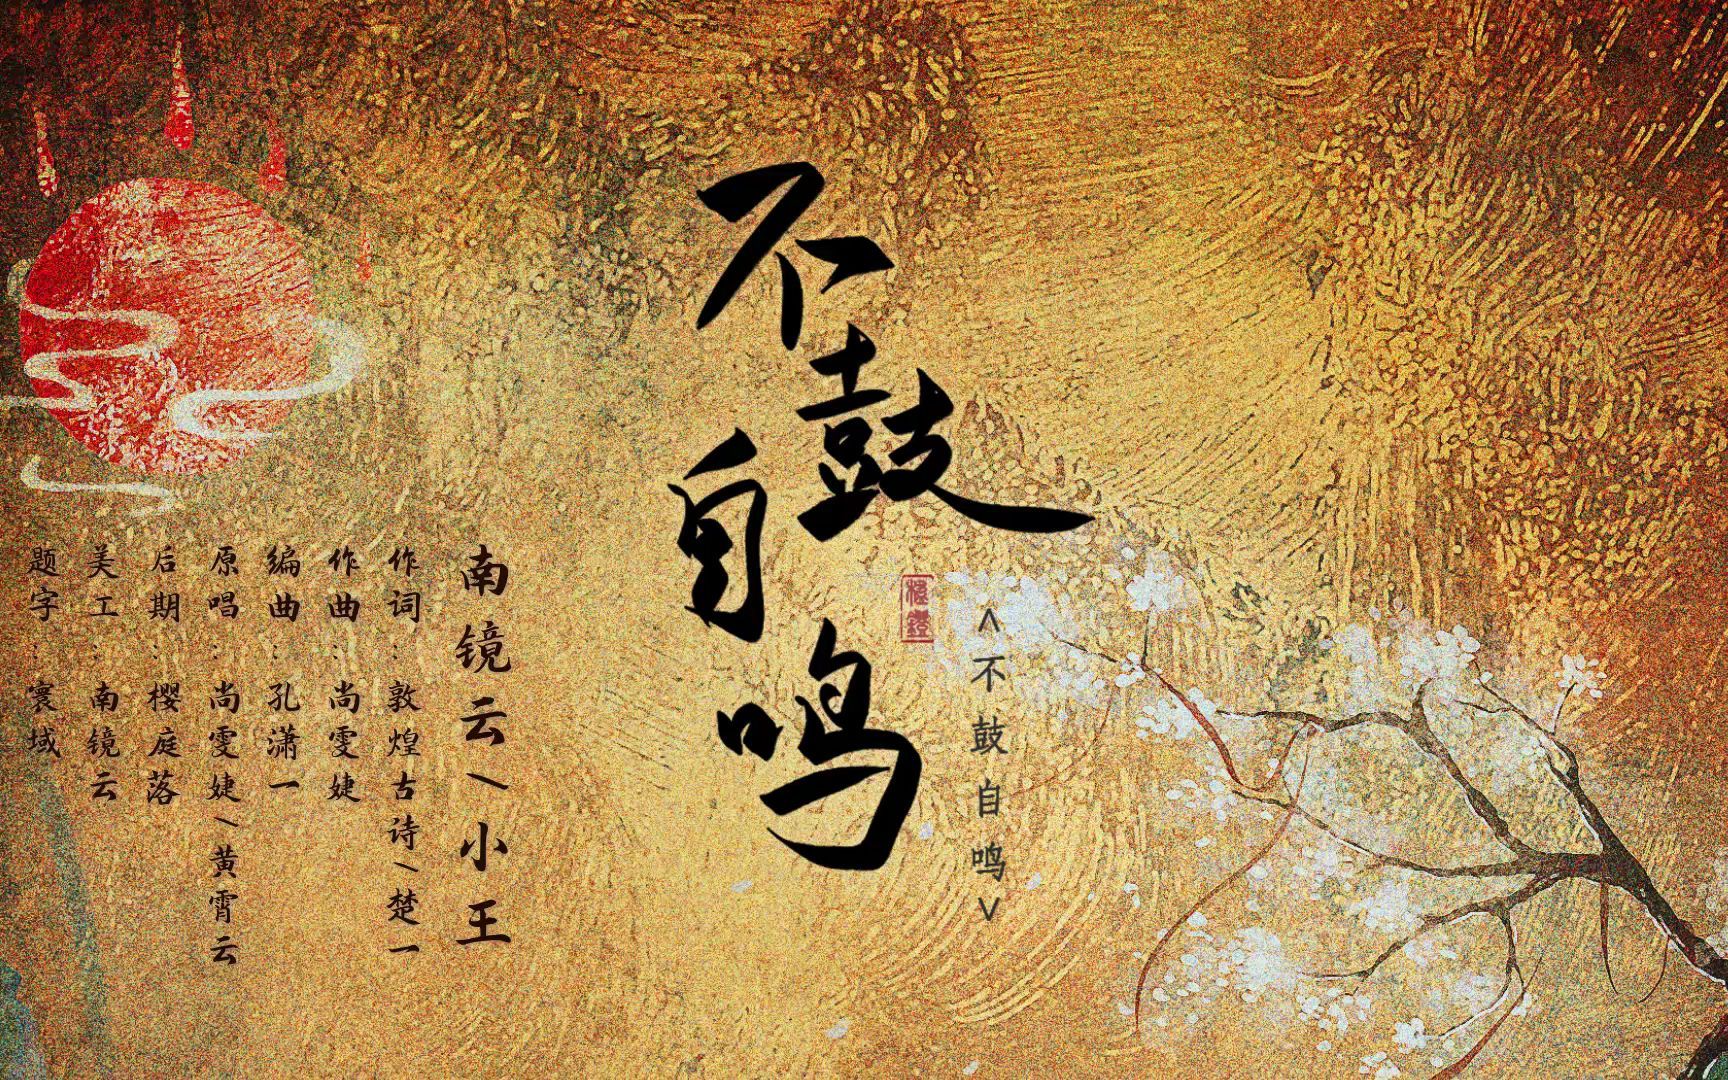 不鼓自鸣
︿不鼓自鸣﹀
南镜云/小王
作词:敦煌古诗/楚一
作曲:尚雯婕
编曲:孔潇一
原唱:尚雯婕/黄霄云
后期:樱庭落
美工:南镜云
题字:寰域